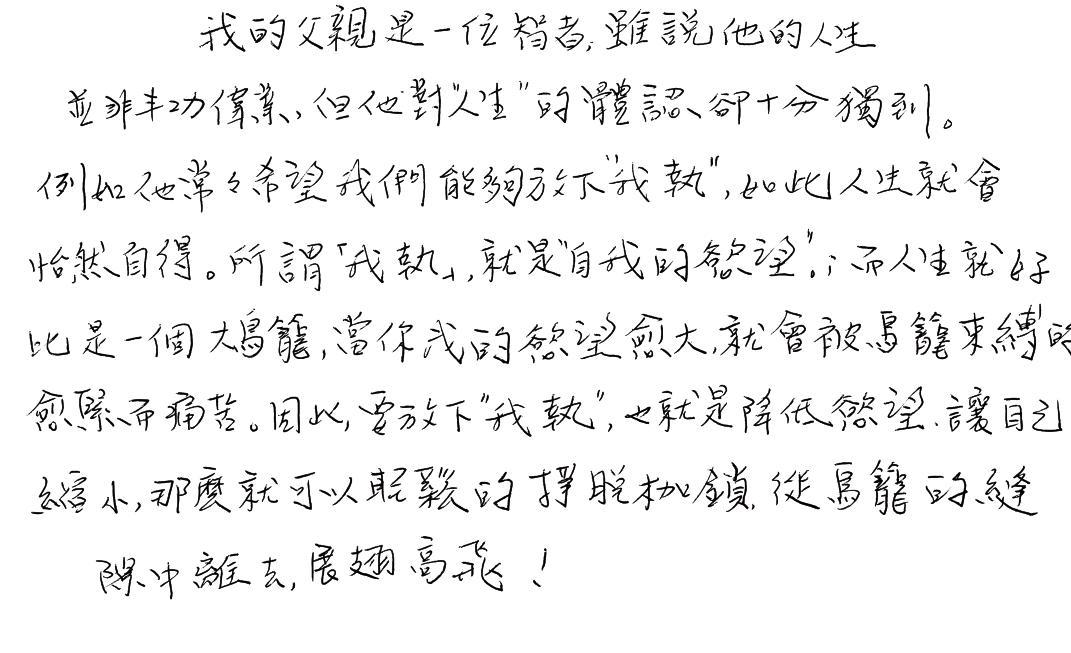 我的父親是一位智者,雖說他的人生
並非丰功偉業,但他對"人生"的體認、卻十分獨到。
例如他常々希望我們能夠放下"我執",如此人生就會
怡然自得。所謂「我執」,就是"自我的慾望";而人生就好
比是一個大鳥籠,當你我的慾望愈大,就會被鳥籠束縛的
愈緊而痛苦。因此,要放下"我執",也就是降低慾望、讓自己
縮小,那麼就可以輕鬆的掙脫枷鎖,從鳥籠的縫
隙中離去,展翅高飛!